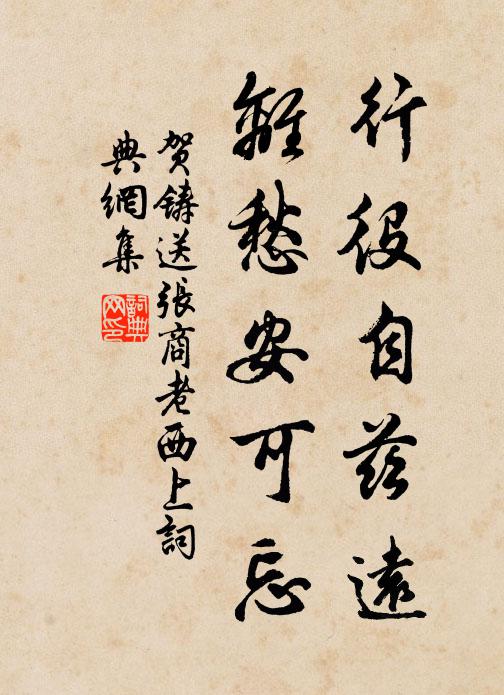 行役自茲遠
離愁安可忘
賀鑄送張商老西上詞
典網集
詞典网印